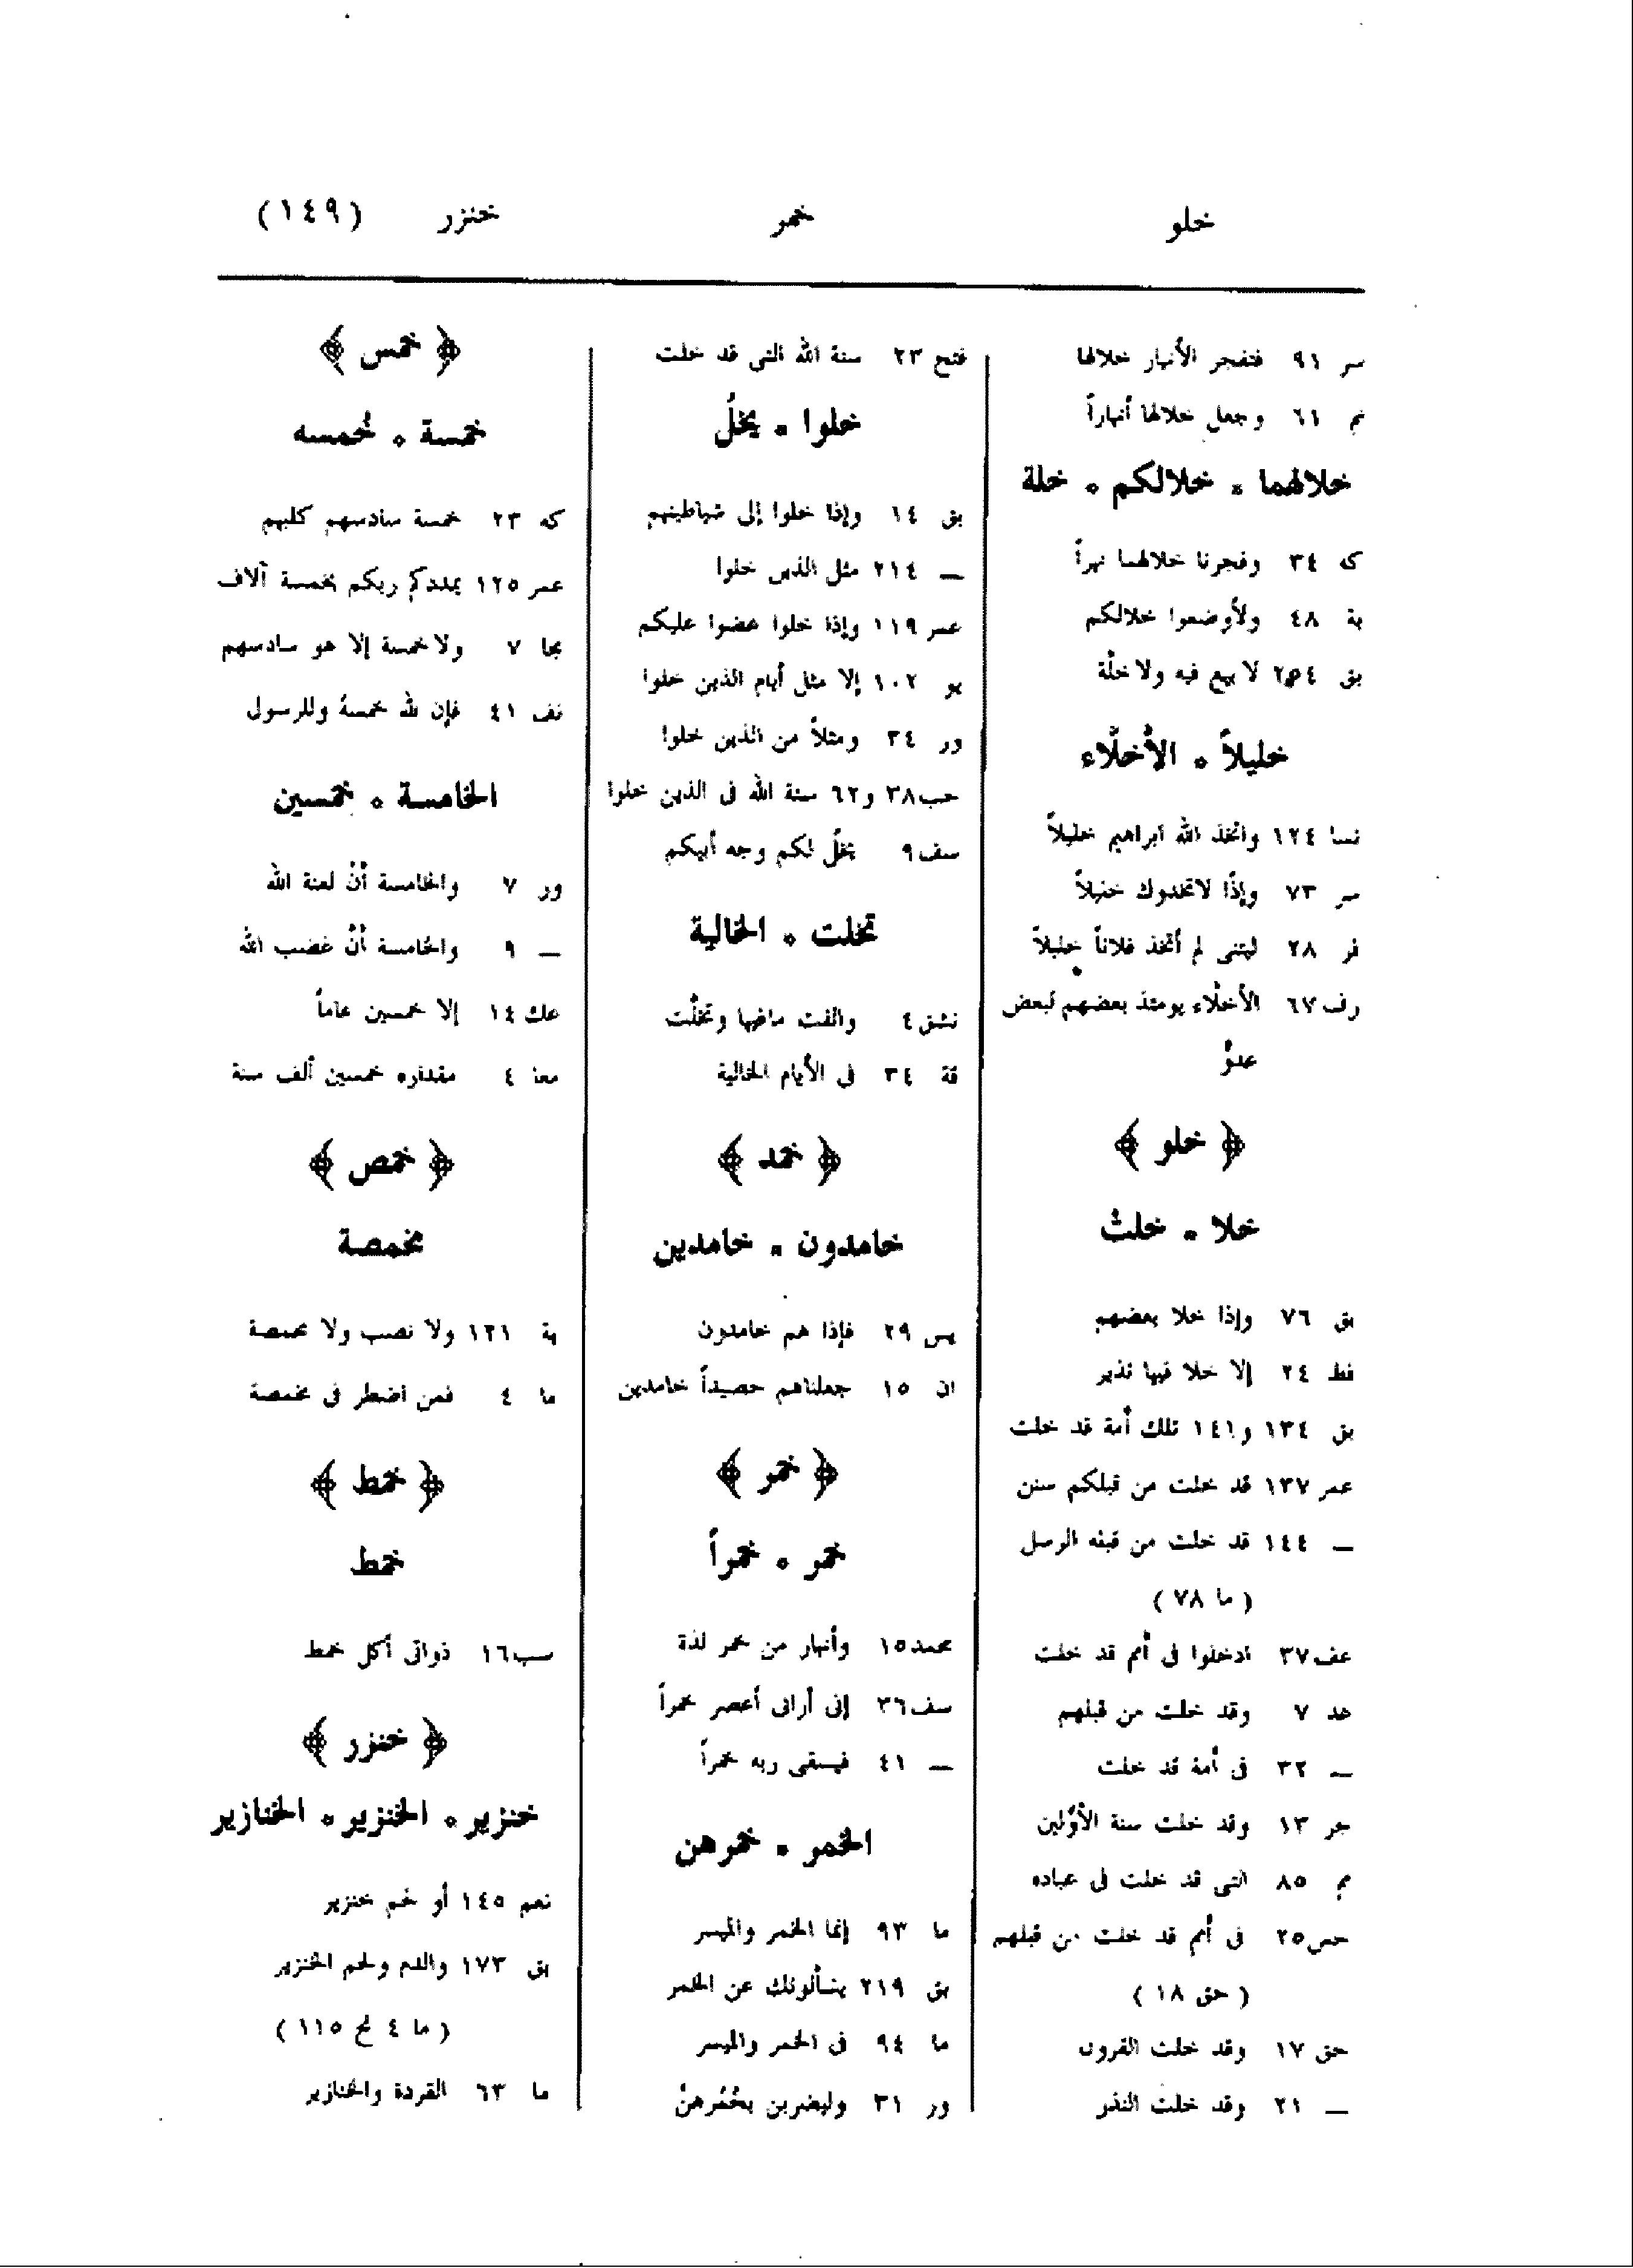 خلو خمر خنزر (١٤٩)
سر ٩١ فتفجر الأنهار خلالها
نم ٦١ وجعل خلالها أنهاراً
خلالهما * خلالكم * خلة
كه ٣٤ وفجرنا خلالهما نهراً
بة ٤٨ ولأوضعوا خلالكم
بق ٢٥٤ لا بيع فيه ولا خلّة
خليلاً * الأخلّاء
نسا ١٢٤ واتخذ الله ابراهيم خليلاً
سر ٧٣ وإذًا لاتخذوك خليلاً
فر ٢٨ ليتنى لم أتخذ فلاناً خليلاً
رف ٦٧ الأخلّاء يومئذ بعضهم لبعض
عدوٌ
﴿ خلو ﴾
خلا * خلتْ
بق ٧٦ وإذا خلا بعضهم
فط ٢٤ إلا خلا فيها نذير
بق ١٣٤ و١٤١ تلك أمة قد خلت
عمر ١٣٧ قد خلت من قبلكم سنن
— ١٤٤ قد خلت من قبله الرسل
( ما ٧٨ )
عف ٣٧ ادخلوا فى أمم قد خلت
عد ٧ وقد خلت من قبلهم
— ٣٢ فى أمة قد خلت
جر ١٣ وقد خلت سنة الأوّلين
مم ٨٥ التى قد خلت فى عباده
حص ٢٥ فى أمم قد خلت من قبلهم
( حق ١٨ )
حق ١٧ وقد خلت القرون
— ٢١ وقد خلت النذر
فتح ٢٣ سنة الله التى قد خلت
خلوا * يخلُ
بق ١٤ وإذا خلوا إلى شياطينهم
— ٢١٤ مثل الذين خلوا
عمر ١١٩ وإذا خلوا عضوا عليكم
يو ١٠٢ إلا مثل أيام الذين خلوا
ور ٣٤ ومثلاً من الذين خلوا
حب ٣٨ و٦٢ سنة الله فى الذين خلوا
سف ٩ يخلُ لكم وجه أبيكم
تخلت * الخالية
نشق ٤ والقت مافيها وتخلّت
قة ٣٤ فى الأيام الخالية
﴿ خمد ﴾
خامدون * خامدين
يس ٢٩ فإذا هم خامدون
ان ١٥ جعلناهم حصيداً خامدين
﴿ خمر ﴾
خمر * خمراً
محمد ١٥ وأنهار من خمر لذة
سف ٣٦ إنى أرانى أعصر خمراً
— ٤١ فيسقى ربه خمراً
الخمر * خمرهن
ما ٩٣ إنما الخمر والميسر
بق ٢١٩ يسألونك عن الخمر
ما ٩٤ فى الخمر والميسر
ور ٣١ وليضربن بخُمُرهنّ
﴿ خمس ﴾
خمسة * خُمسه
كه ٢٣ خمسة سادسهم كلبهم
عمر ١٢٥ يمددكم ربكم بخمسة آلاف
مجا ٧ ولا خمسة إلا هو سادسهم
نف ٤١ فإن لله خمسهُ وللرسول
الخامسة * خمسين
ور ٧ والخامسة أنّ لعنة الله
— ٩ والخامسة أنّ غضب الله
عك ١٤ إلا خمسين عاماً
معا ٤ مقداره خمسين ألف سنة
﴿ خمص ﴾
مخمصة
بة ١٢١ ولا نصب ولا مخمصة
ما ٤ فمن اضطر فى مخمصة
﴿ خمط ﴾
خمط
سب ١٦ ذواتى أكل خمط
﴿ خنزر ﴾
خنزير * الخنزير * الخنازير
نعم ١٤٥ أو لحم خنزير
بق ١٧٣ والدم ولحم الخنزير
( ما ٤ نح ١١٥ )
ما ٦٣ القردة والخنازير